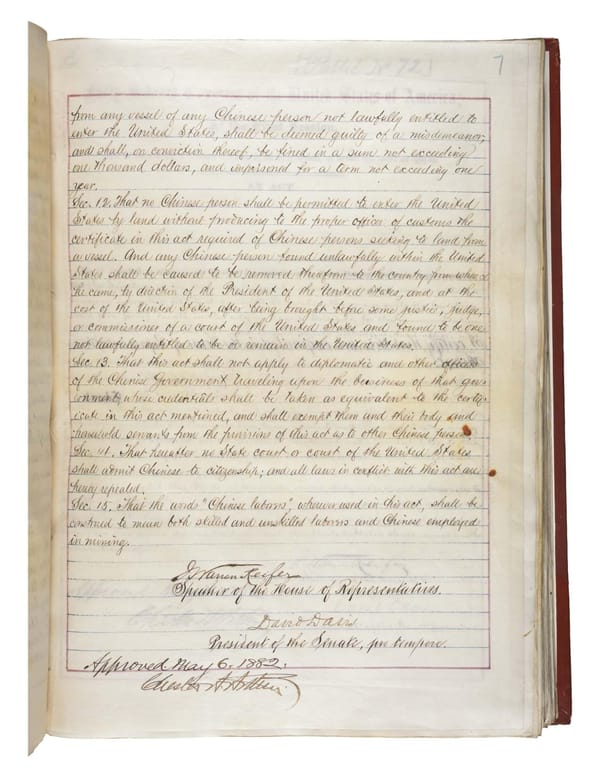 7
from any vessel of any Chinese person not lawfully entitled to
enter the United States, shall be deemed guilty of a misdemeanor,
and shall, on conviction thereof, be fined in a sum not exceeding
one thousand dollars, and imprisoned for a term not exceeding one
year.
Sec. 12. That no Chinese person shall be permitted to enter the United
States by land without producing to the proper officer of customs the
certificate in this act required of Chinese persons seeking to land from
a vessel. And any Chinese person found unlawfully within the United
States shall be caused to be removed therefrom to the country from whence
he came, by direction of the President of the United States, and at the
cost of the United States, after being brought before some justice, judge,
or commissioner of a court of the United States and found to be one
not lawfully entitled to be or remain in the United States.
Sec. 13. That this act shall not apply to diplomatic and other officers
of the Chinese Government traveling upon the business of that gov-
ernment, whose credentials shall be taken as equivalent to the certif-
icate in this act mentioned, and shall exempt them and their body and
household servants from the provisions of this act as to other Chinese persons.
Sec. 14. That hereafter no State court or court of the United States
shall admit Chinese to citizenship; and all laws in conflict with this act are
hereby repealed.
Sec. 15. That the words "Chinese laborers", wherever used in this act, shall be
construed to mean both skilled and unskilled laborers and Chinese employed
in mining.
J Warren Keifer
Speaker of the House of Representatives.
David Davis
President of the Senate, pro tempore.
Approved May 6. 1882.
Chester A Arthur